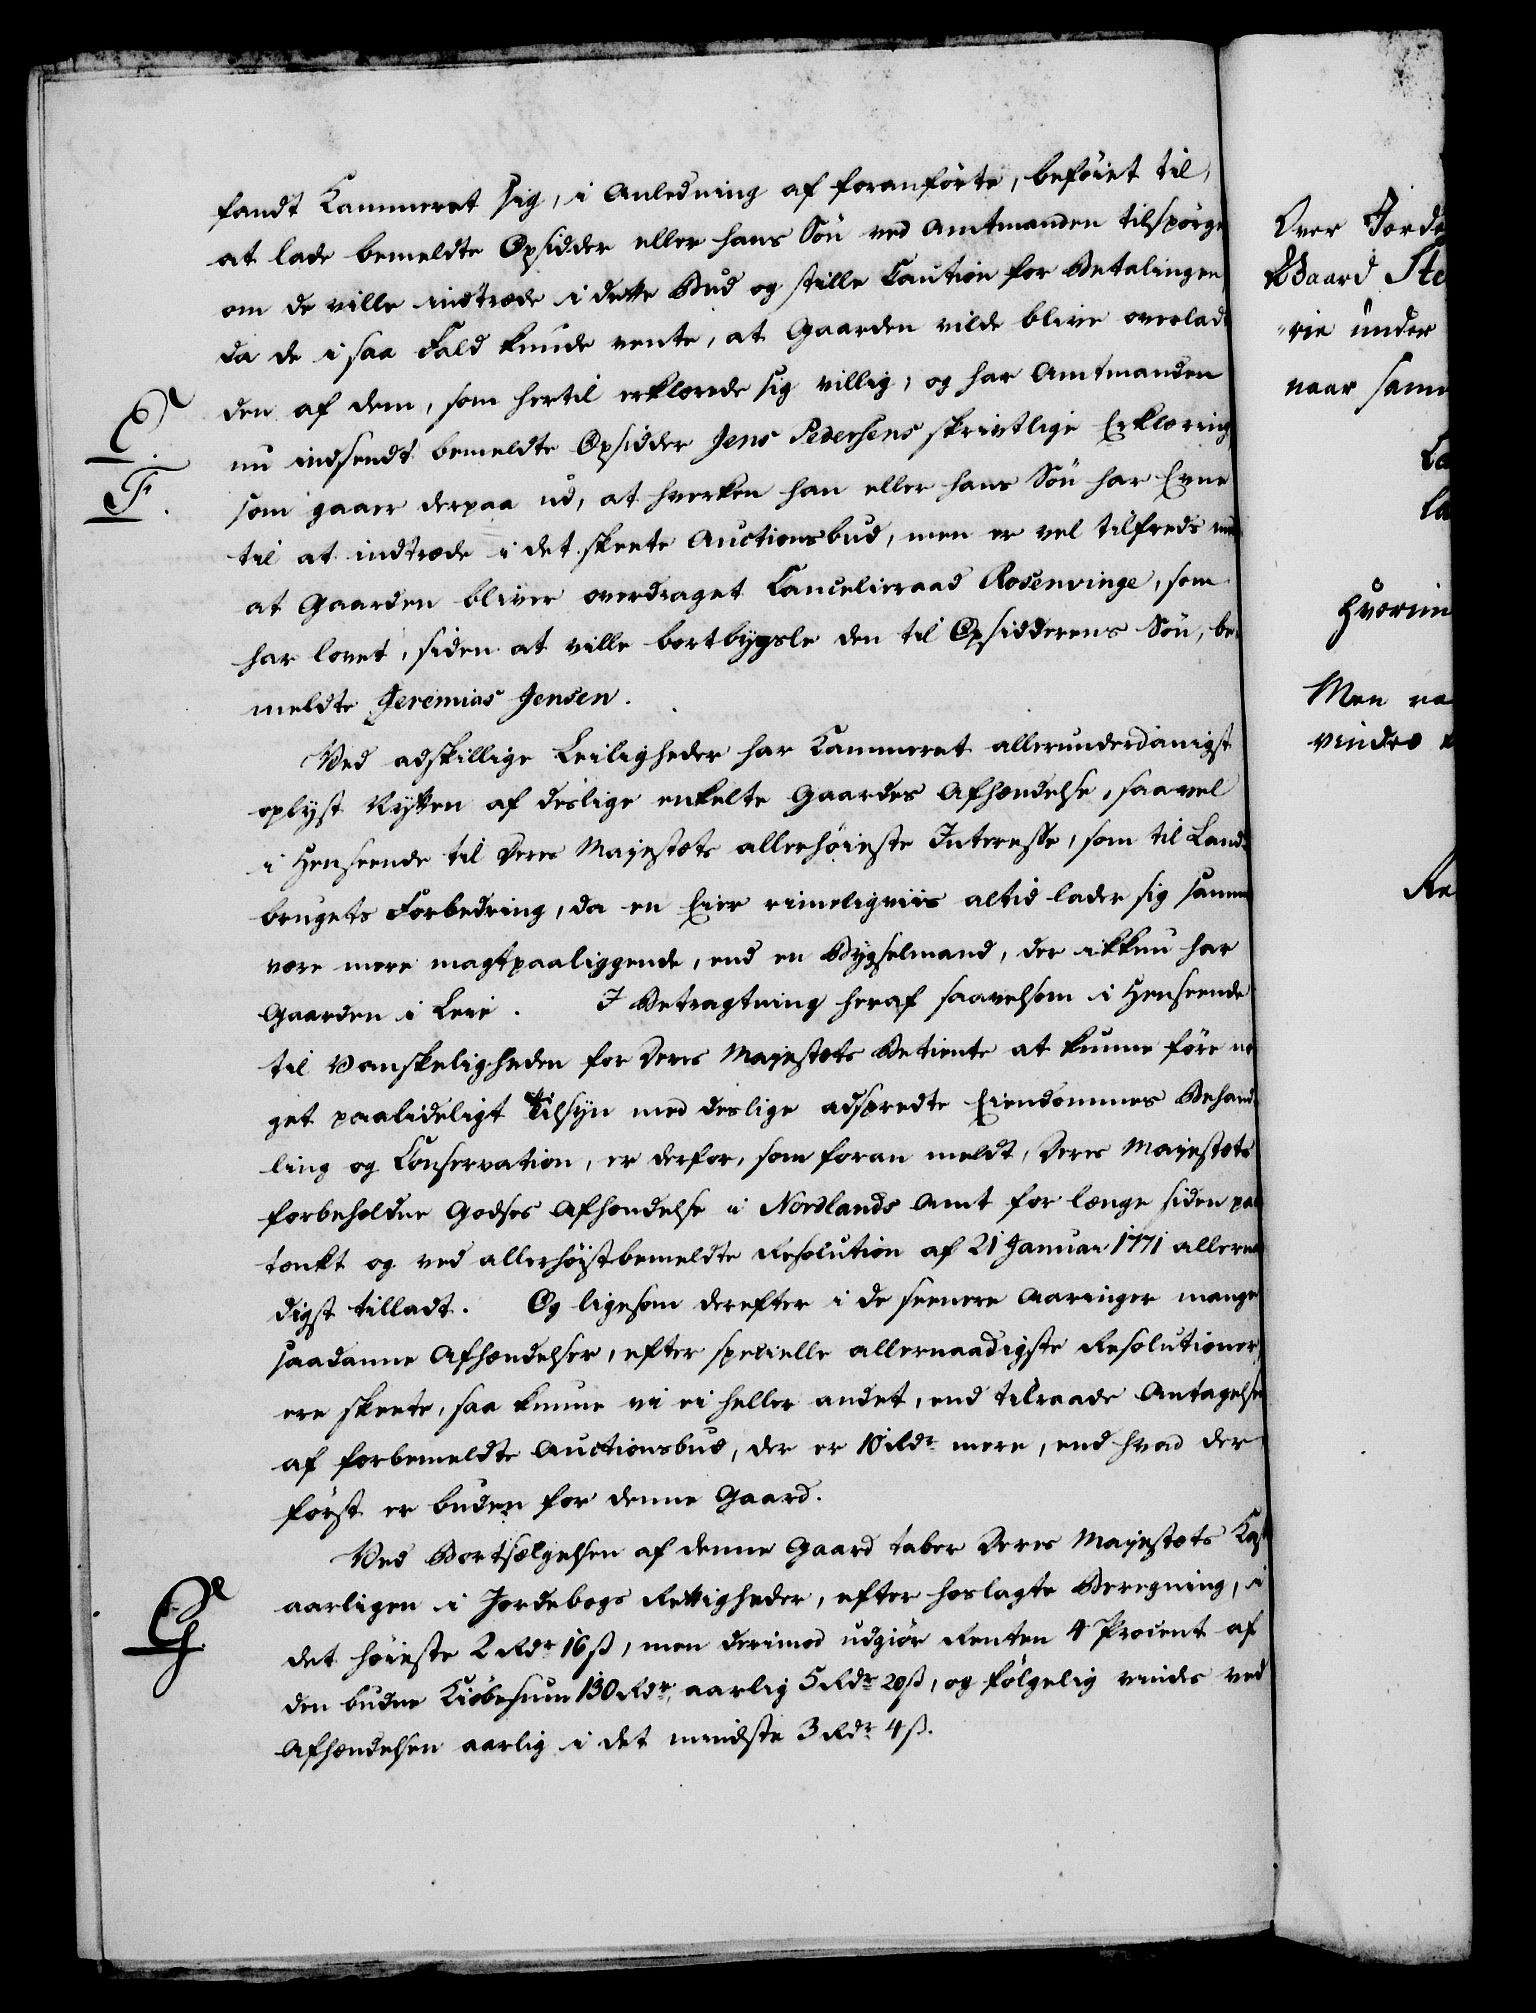 fandt Kammeret sig, i Anledning af foranførte, beføiet til,
at lade bemeldte Opsidder eller hans Søn ved Amtmanden tilspørge
om de ville indtræde i dette Bud og stille Caution for Betalingen
da de i saa Fald kunde vente, at Gaarden vilde blive overladt
den af dem, som hertil erklærede sig villig, og har Amtmanden
E.
nu indsendt bemeldte Opsidder Jens Pedersens skrivtlige Erklæring
F.
som gaaer derpaa ud, at hverken han eller hans Søn har Evne
til at indtræde i det skeete Auctionsbud, men er vel tilfreds med
at Gaarden bliver overdraget Cancelieraad Rosenvinge, som
har lovet, siden at ville bortbygsle den til Opsidderens Søn, be-
meldte Jeremias Jensen.
Ved adskillige Leiligheder har Kammeret allerunderdanigst
oplyst Nytten af deslige enkelte Gaardes Afhændelse, saavel
i Henseende til Deres Majestæts allerhøieste Interesse, som til Land-
brugets Forbedring, da en Eier rimeligviis altid lader sig samme
være mere magtpaaliggende, end en Bygselmand, der ikkun har
Gaarden i Leie. I Betragtning heraf saavelsom i Henseende
til Vanskeligheden for Deres Majestæts Betiente at kunne føre no
get paalideligt Tilsyn med deslige adspredte Eiendommes Behand-
ling og Conservation, er derfor, som foran meldt, Deres Majestæts
forbeholdne Godses Afhændelse i Nordlands Amt for længe siden paa
tænkt og ved allerhøistbemeldte Resolution af 21 Januar 1771 allernaa
digst tilladt. Og ligesom derefter i de seenere Aaringer mange
saadanne Afhændelser, efter specielle allernaadigste Resolutioner,
ere skeete, saa kunne vi ei heller andet, end tilraade Antagelsen
af forbemeldte Auctionsbud, der er 10 Rdr mere, end hvad der
først er buden for denne Gaard.
Ved Bortsælgelsen af denne Gaard taber Deres Majestæts Kas
G
aarligen i Jordebogs Rettigheder, efter hoslagte Beregning, i
det høieste 2 Rdr 16 ß, men derimod udgiør Renten 4 Procent af
den budne Kiøbesum 130 Rdr, aarlig 5 Rdr 20 ß, og følgelig vindes ved
Afhændelsen aarlig i det mindste 3 Rdr 4 ß.
Over Jorde
Gaard Ste
rie under
naar sam
Ca
la
hvorim
Men na
vindes
Re